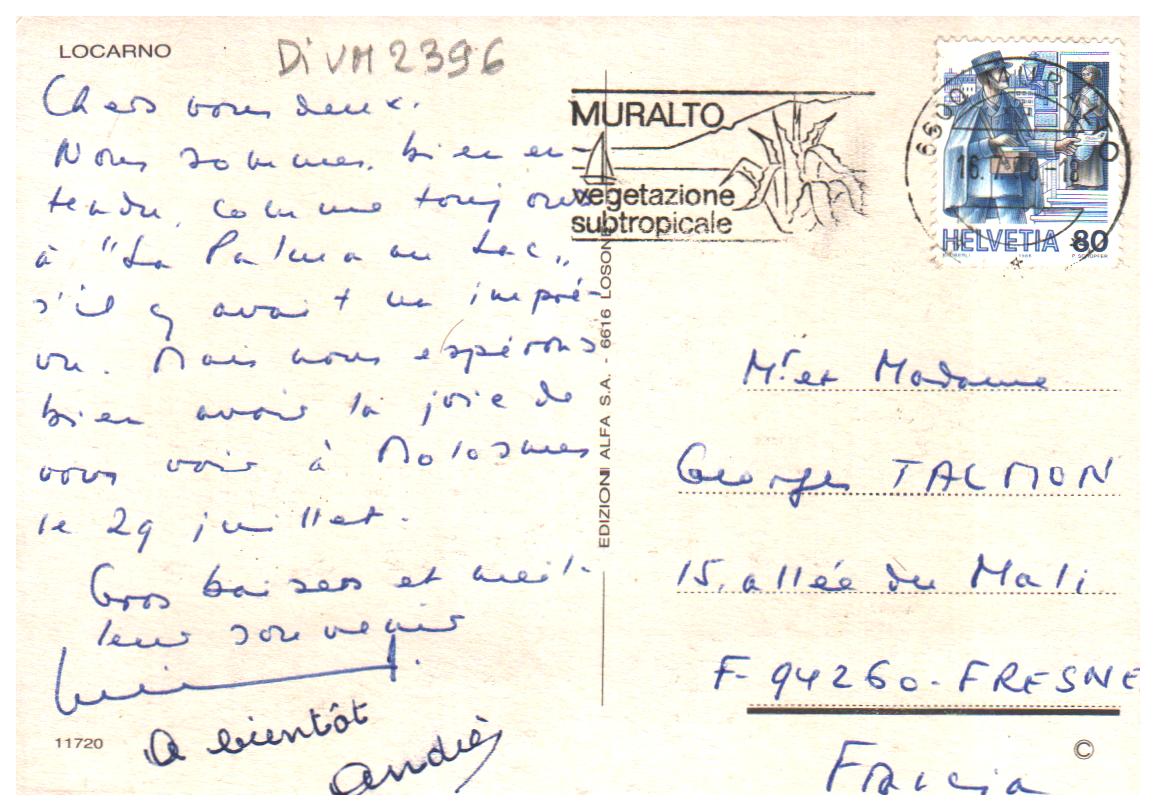 LOCARNO
Di VM 2396
Chers vous deux.
Nous sommes, bien en-
tendu, comme toujours
à "La Palma au Lac"
s'il y avait un impré-
vu. Mais nous espérons
bien avoir la joie de
vous voir à Molosmes
le 29 juillet.
Gros baisers et meil-
leur souvenir
A bientôt
andrée
11720
EDIZIONI ALFA S.A. - 6616 LOSONE
MURALTO
vegetazione
subtropicale
6600 MURALTO
16. 7. -18
HELVETIA 80
1986 P. SCHOPFER
Mr et Madame
Georges TALMON
15, allée du Mali
F- 94260 - FRESNE
Francia
©